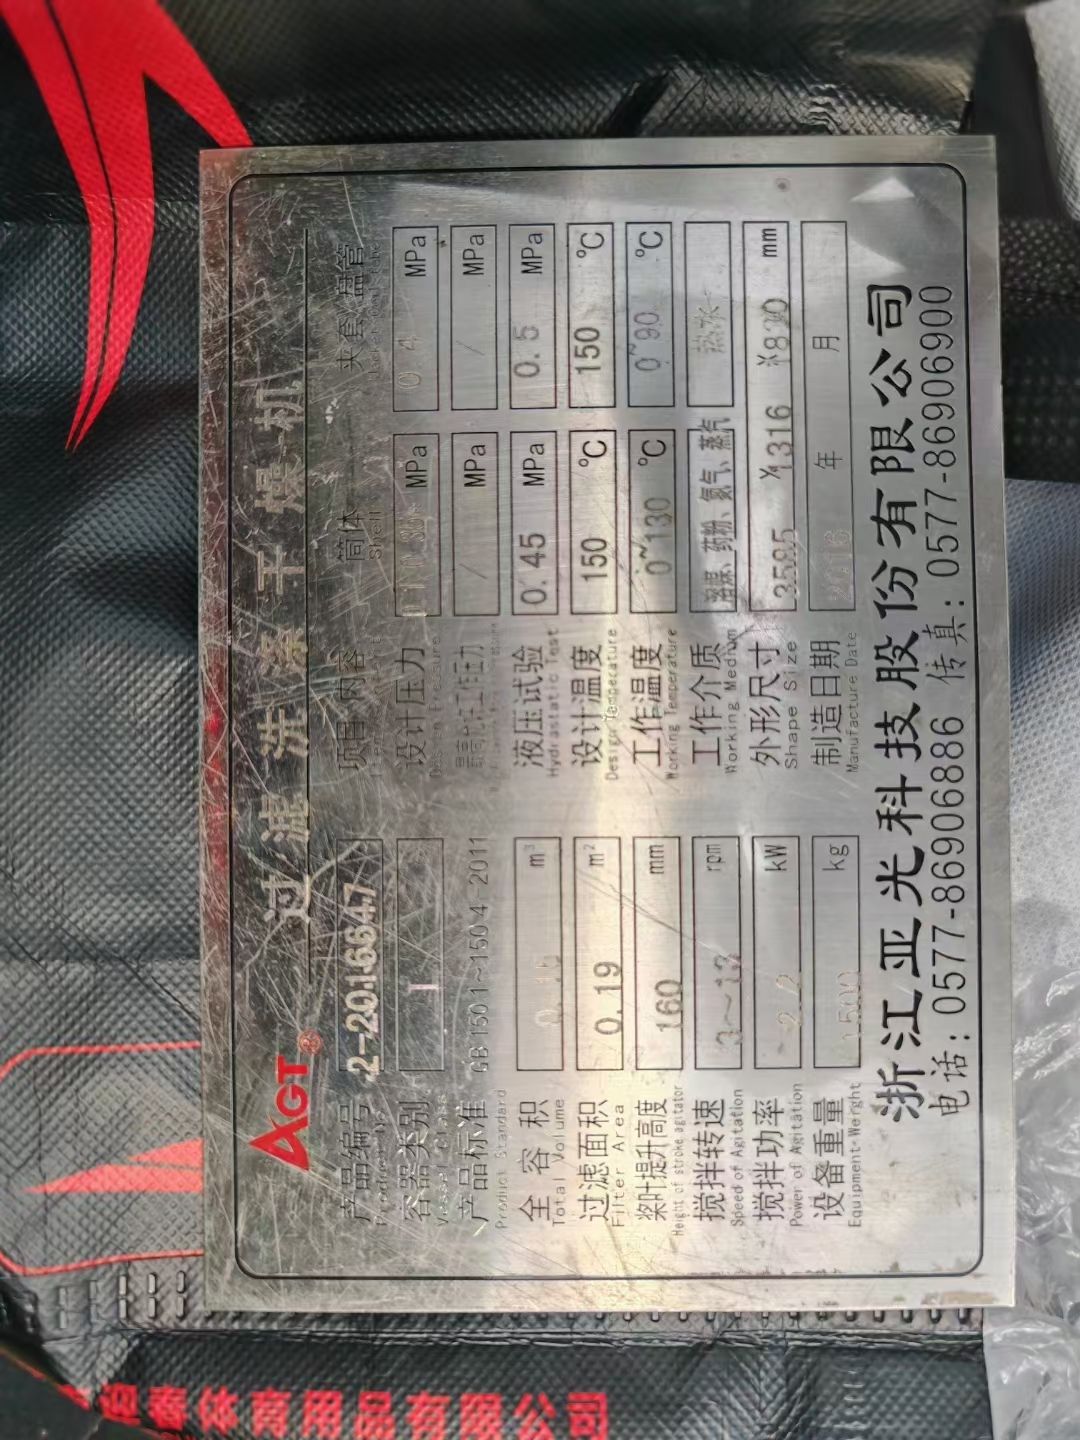 AGT 过滤洗涤干燥机
产品编号 2-2016647
Product No
容器类别 I
Vessel Class
产品标准 GB 150.1~150.4-2011
Product Standard
全容积 0.15 m³
Total Volume
过滤面积 0.19 m²
Filter Area
桨叶提升高度 160 mm
Height of stroke agitator
搅拌转速 3~13 rpm
Speed of Agitation
搅拌功率 2.2 kW
Power of Agitation
设备重量 1500 kg
Equipment Weight
项目内容 筒体 夹套/盘管
Shell
设计压力 MPa 0.4 MPa
Design Pressure
最高允许工作压力 / MPa / MPa
液压试验 0.45 MPa 0.5 MPa
Hydrastatic Test
设计温度 150 ℃ 150 ℃
Design Temperature
工作温度 0~130 ℃ 0~90 ℃
Working Temperature
工作介质 药粉、氮气、蒸汽 热水
Working Medium
外形尺寸 3585 ×1316 ×1830 mm
Shape Size
制造日期 2016 年 月
Manufacture Date
浙江亚光科技股份有限公司
电话: 0577-86906886 传真: 0577-86906900
体育用品有限公司